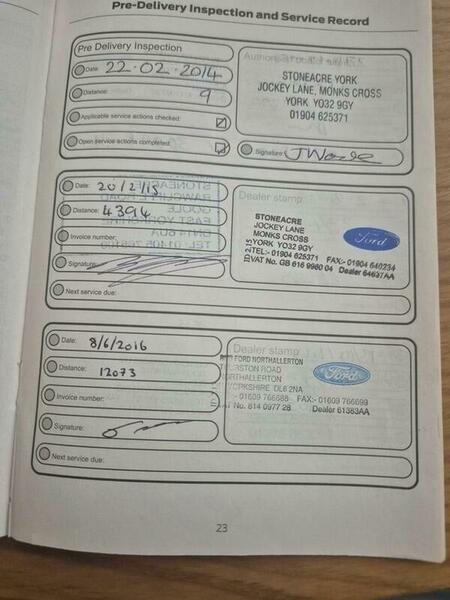 Pre-Delivery Inspection and Service Record
Pre Delivery Inspection
Date: 22.02.2014
Distance: 9
Applicable service actions checked:
Open service actions completed:
STONEACRE YORK
JOCKEY LANE, MONKS CROSS
YORK YO32 9GY
01904 625371
Signature:
Date: 20/2/15
Distance: 4394
Invoice number:
Signature:
Next service due:
Dealer stamp:
STONEACRE
JOCKEY LANE
MONKS CROSS
YORK YO32 9GY
TEL:- 01904 625371 FAX:- 01904 640234
VAT No. GB 616 9960 04 Dealer 64637AA
Ford
Date: 8/6/2016
Distance: 12073
Invoice number:
Signature:
Next service due:
Dealer stamp:
FORD NORTHALLERTON
ROAD
NORTHALLERTON
YORKSHIRE DL6 2NA
01609 766688 FAX:- 01609 766699
No. 814 0977 28 Dealer 61383AA
Ford
23